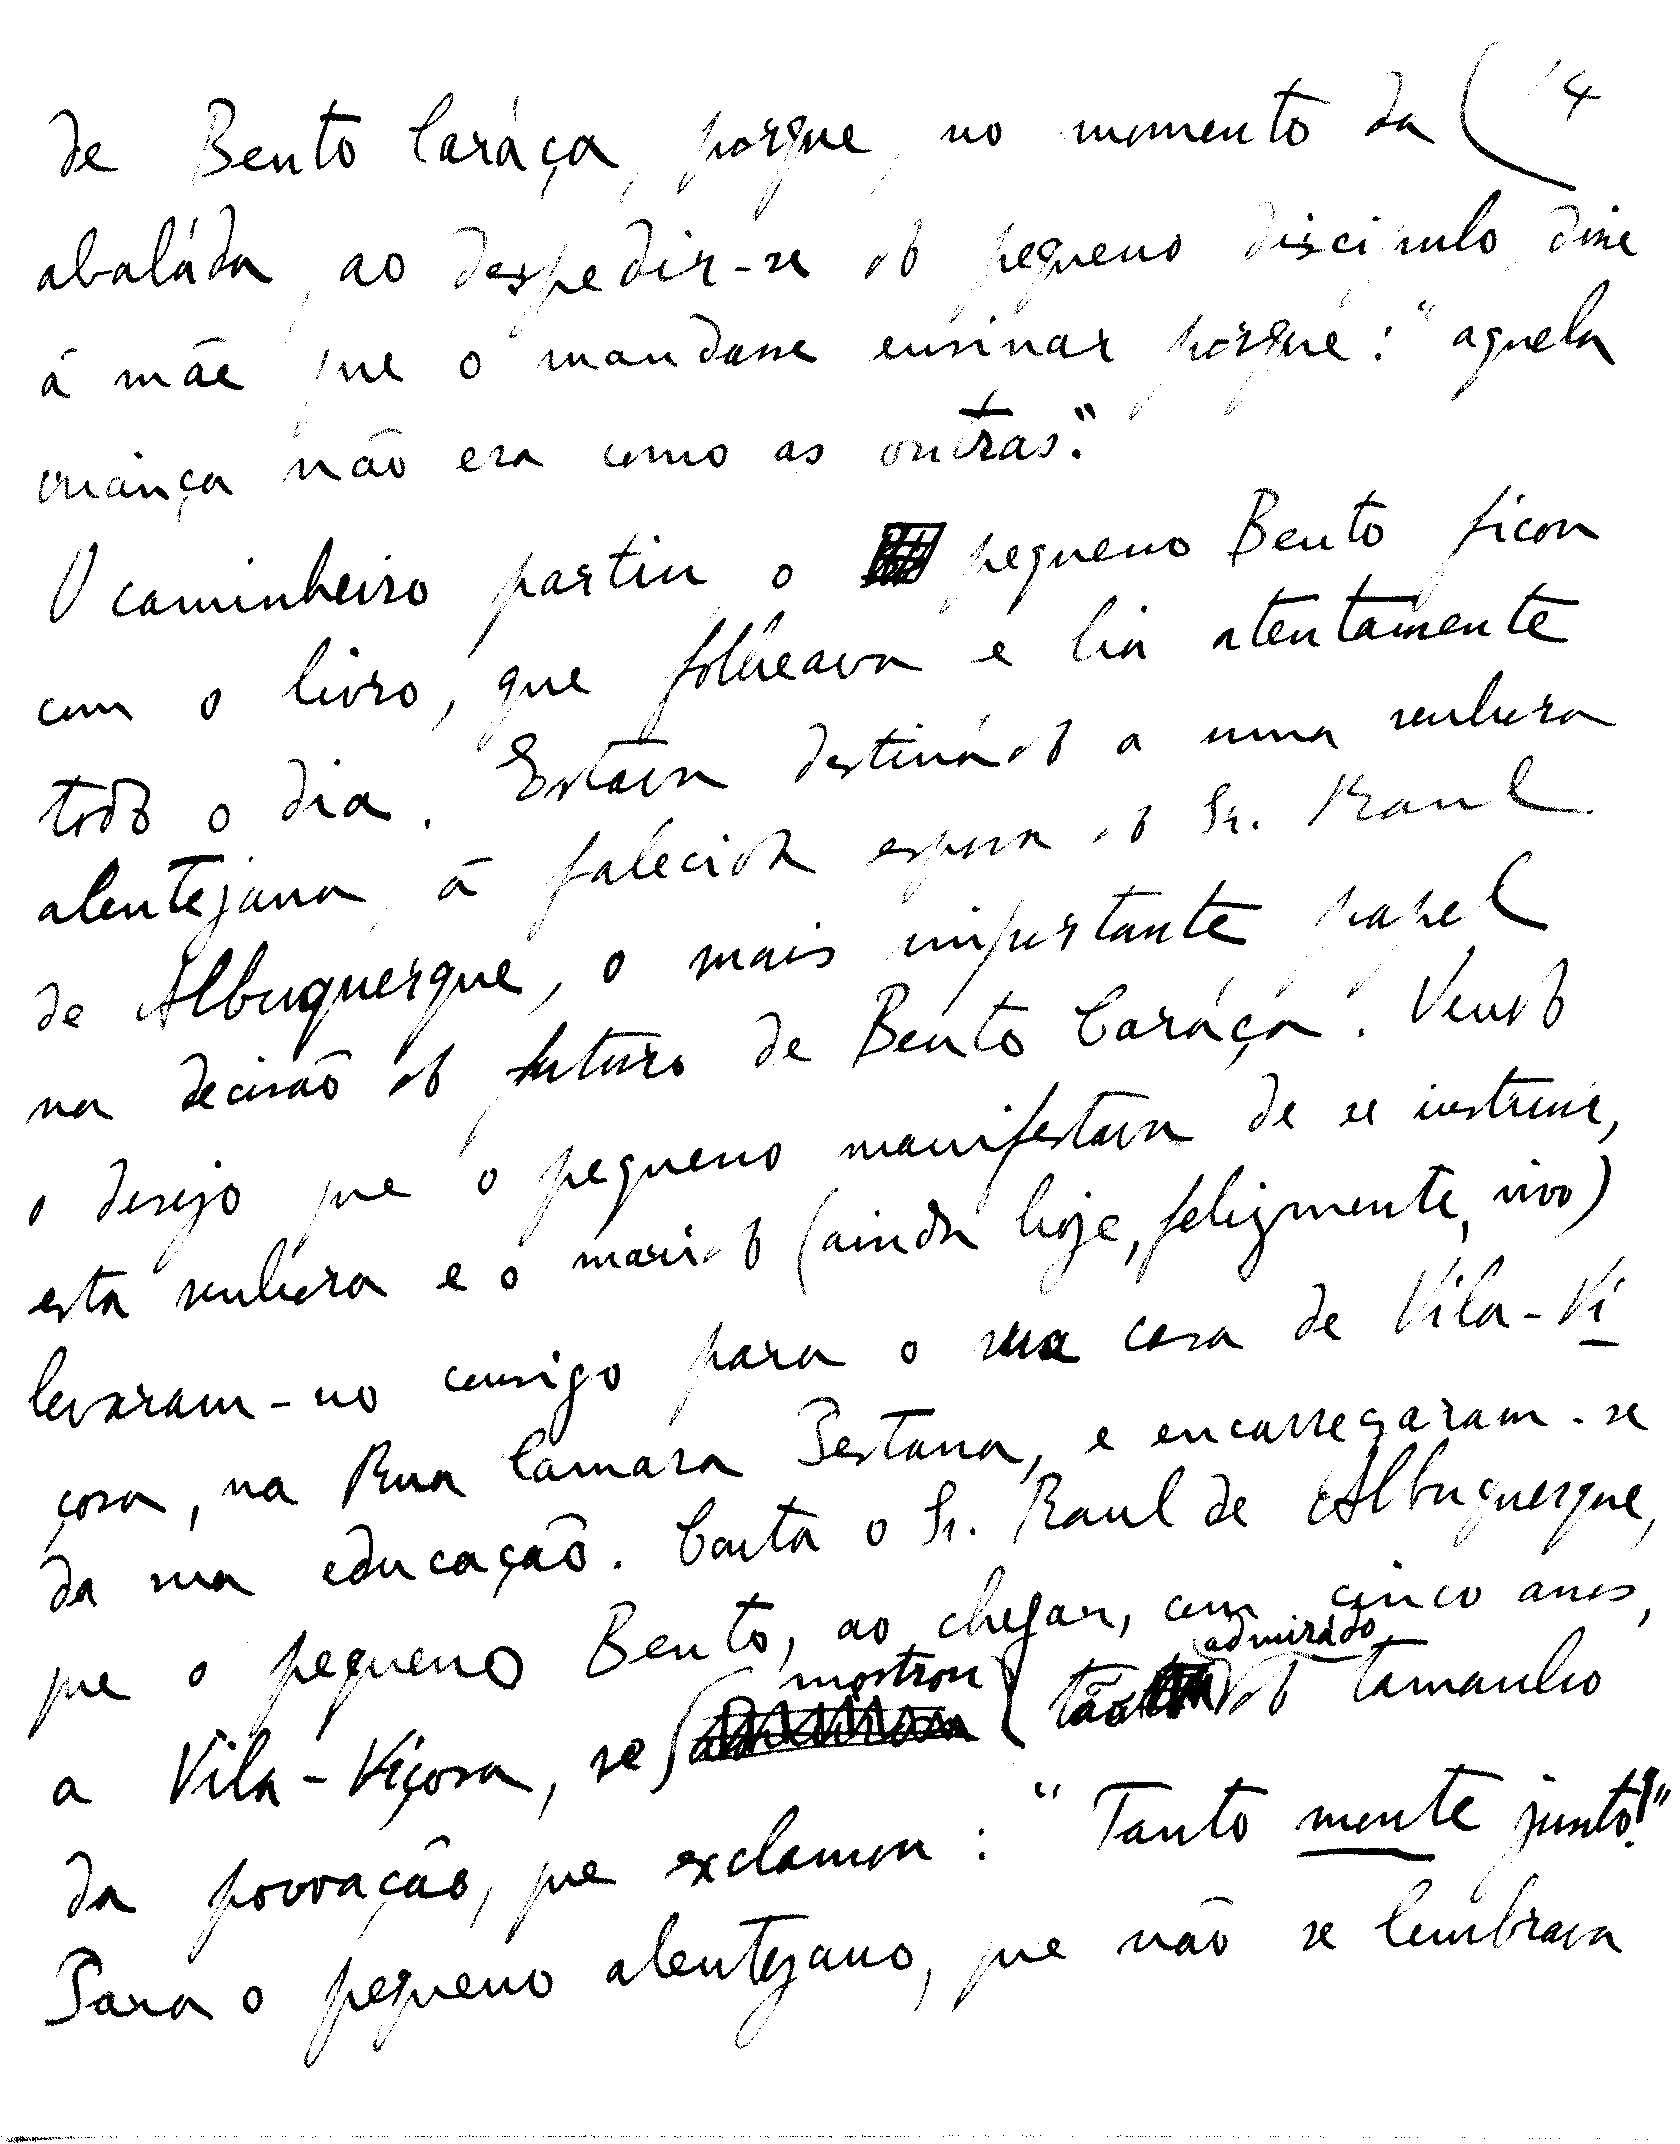 14
de Bento Caráça, porque, no momento da
abaláda, ao despedir-se do pequeno discipulo, disse
á mãe que o mandasse ensinar porque: "aquela
criança não era como as outras."
O caminheiro partiu o pequeno Bento ficou
com o livro, que folheava e lia atentamente
todo o dia. Estava destinádo a uma senhora
alentejana, á falecida esposa do Sr. Raul
de Albuquerque, o mais importante papel
na decisão do futuro de Bento Caráça. Vendo
o desejo que o pequeno manifestava de se instruir,
esta senhora e o marido (ainda hoje, felizmente, vivo)
levaram-no consigo para o sua casa de Vila-Vi
çosa, na Rua Camara Pestana, e encarregaram-se
da sua educação. Conta o Sr. Raul de Albuquerque,
que o pequeno Bento, ao chegar, com cinco anos,
a Vila-Viçosa, se mostrou tão admirado do tamanho
da povoação, que exclamou: "Tanto monte junto!"
Para o pequeno alentejano, que não se lembrava